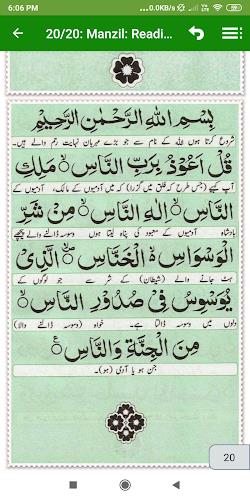 6:06 PM
0.0KB/s
20/20: Manzil: Readi...
بِسْمِ اللهِ الرَّحْمٰنِ الرَّحِيْمِ
شروع کرتا ہوں اللہ کے نام سے جو بڑے مہربان نہایت رحم والے ہیں۔
قُلْ اَعُوْذُ بِرَبِّ النَّاسِ ۙ مَلِكِ
آپ کہیے (جس طرح کہ فلق میں گزرا) کہ میں آدمیوں کے مالک، آدمیوں کے
النَّاسِ ۙ اِلٰهِ النَّاسِ ۙ مِنْ شَرِّ
بادشاہ آدمیوں کے معبود کی پناہ لیتا ہوں وسوسہ ڈالنے والے پیچھے
الْوَسْوَاسِ ۙ الْخَنَّاسِ ۙ الَّذِيْ
ہٹ جانے والے (شیطان) کے شر سے جو لوگوں کے
يُوَسْوِسُ فِيْ صُدُوْرِ النَّاسِ ۙ
دلوں میں وسوسہ ڈالتا ہے۔ خواہ (وسوسہ ڈالنے والا)
مِنَ الْجِنَّةِ وَالنَّاسِ
جن ہو یا آدمی (ہو)۔
20